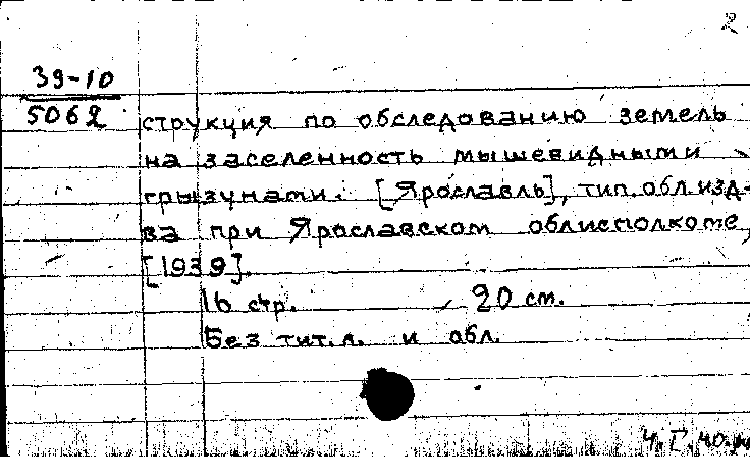 2
39-10
5062
струкция по обследованию земель
на заселенность мышевидными
грызунами. [Ярославль], тип. обл. изд-
ва при Ярославском облисполкоме,
[1939].
16 стр. 20 см.
Без тит. л. и обл.